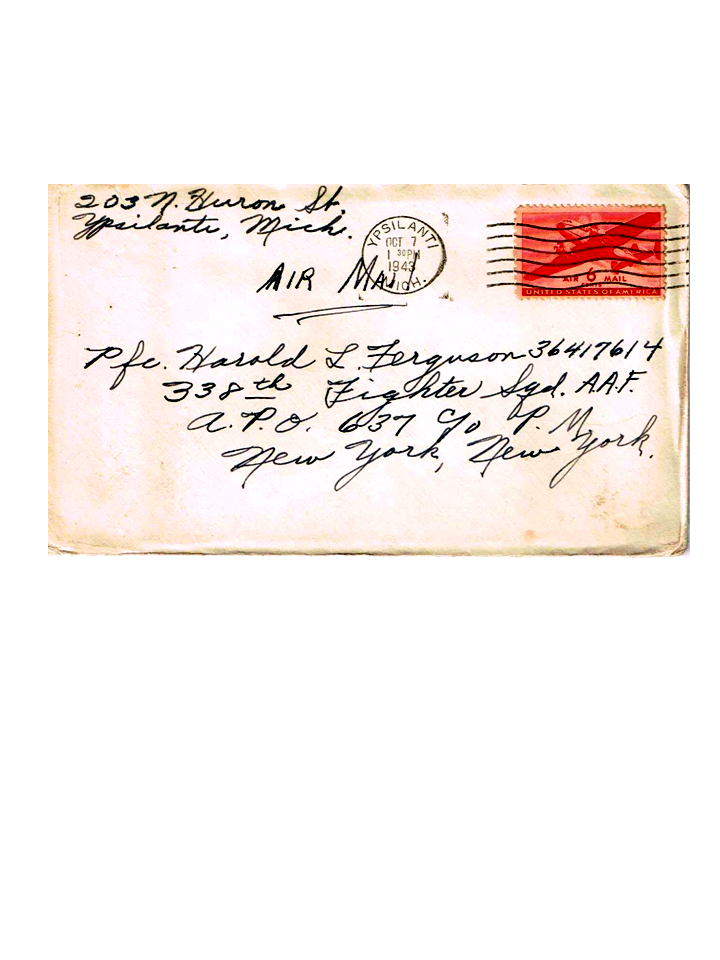 203 N. Huron St.
Ypsilanti, Mich.
YPSILANTI
OCT 7
1 30PM
1943
MICH.
AIR MAIL
AIR 6 MAIL
CENTS
UNITED STATES OF AMERICA
Pfc. Harold L. Ferguson 36417614
338th Fighter Sqd. A.A.F.
A.P.O. 637 c/o P.M.
New York, New York.